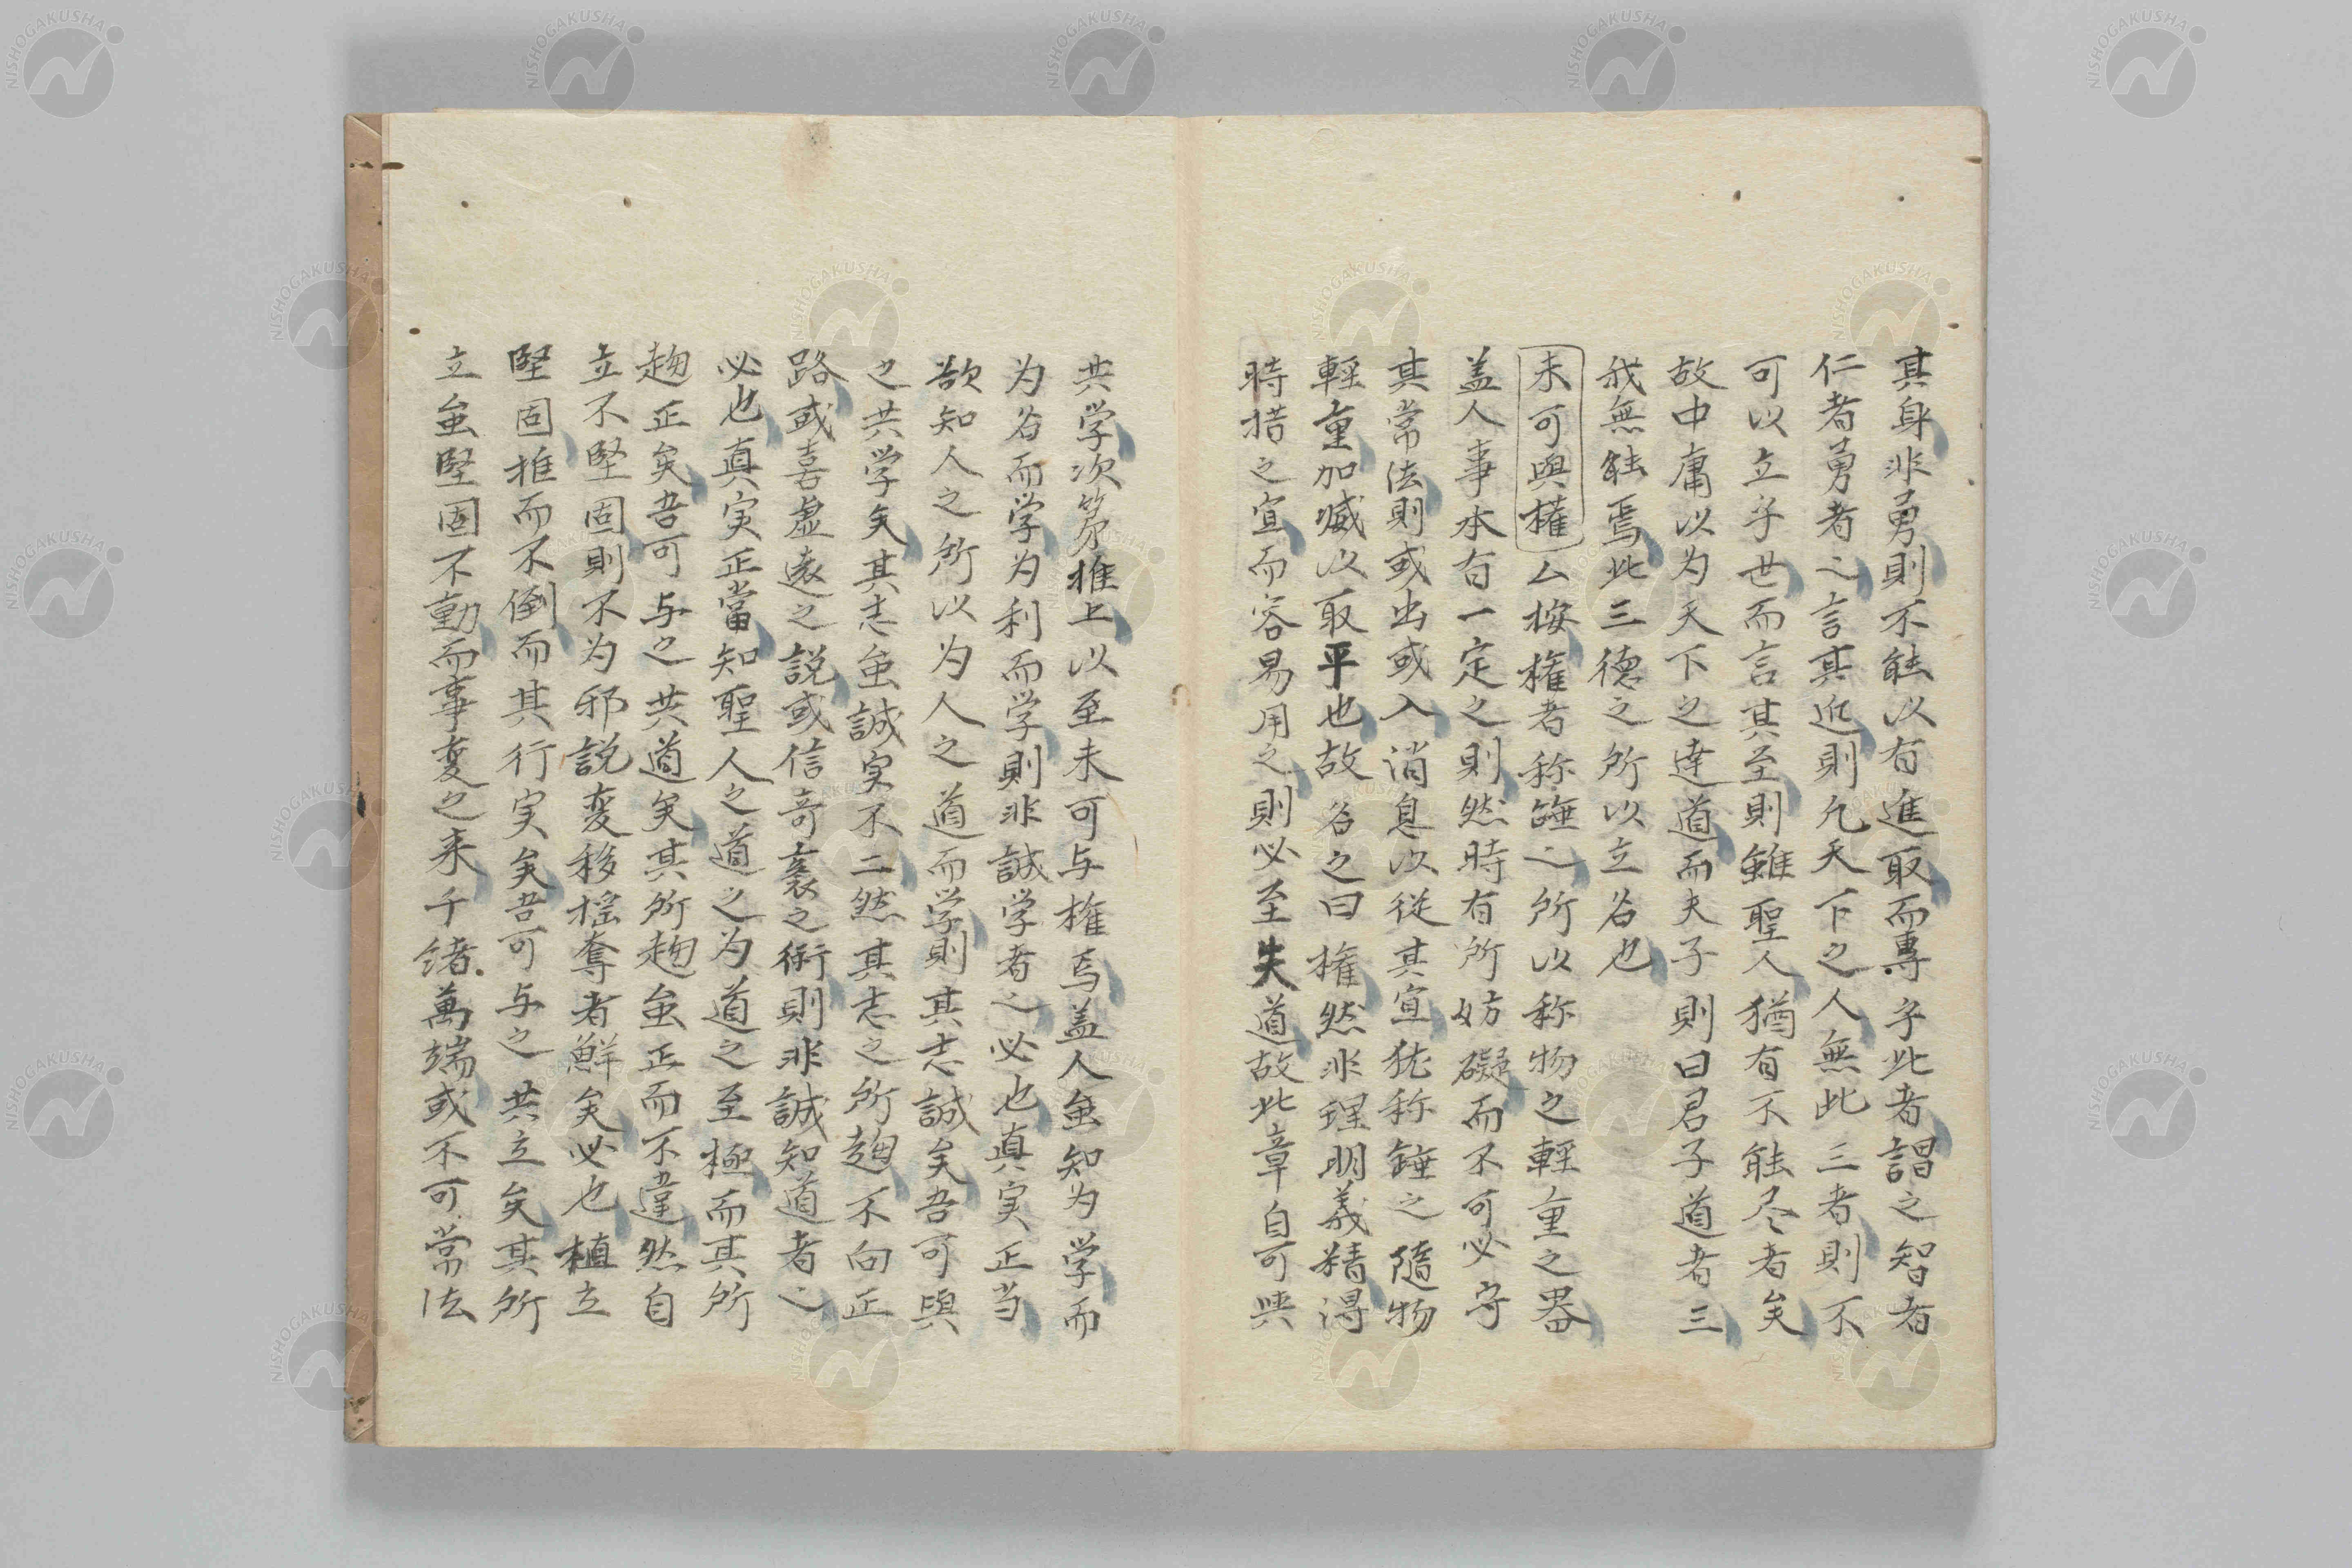 其身非勇則不能以有進取而專乎此者謂之智者
仁者勇者之言其近則凡天下之人無此三者則不
可以立乎世而言其至則雖聖人猶有不能尽者矣
故中庸以为天下之達道而夫子則曰君子道者三
我無能焉此三徳之所以立名也
未可與權 按権者称錘之所以称物之輕重之器
盖人事本有一定之則然時有所妨礙而不可必守
其常法則或出或入消息以従其宜犹称錘之隨物
輕重加减以取平也故名之曰権然非理明義精得
時措之宜而容易用之則必至失道故此章自可與
共学次第推上以至未可与権焉盖人虽知为学而
为名而学为利而学則非誠学者之必也真実正当
欲知人之所以为人之道而学則其志誠矣吾可與
之共学矣其志虽誠実不二然其志之所趨不向正
路或喜虚遠之説或信奇袤之術則非誠知道者之
必也真実正當知聖人之道之为道之至極而其所
趨正矣吾可与之共道矣其所趨虽正而不違然自
立不堅固則不为邪説変移揺奪者鮮矣必也植立
堅固推而不倒而其行実矣吾可与之共立矣其所
立虽堅固不動而事変之来千緒萬端或不可常法
NISHOGAKUSHA